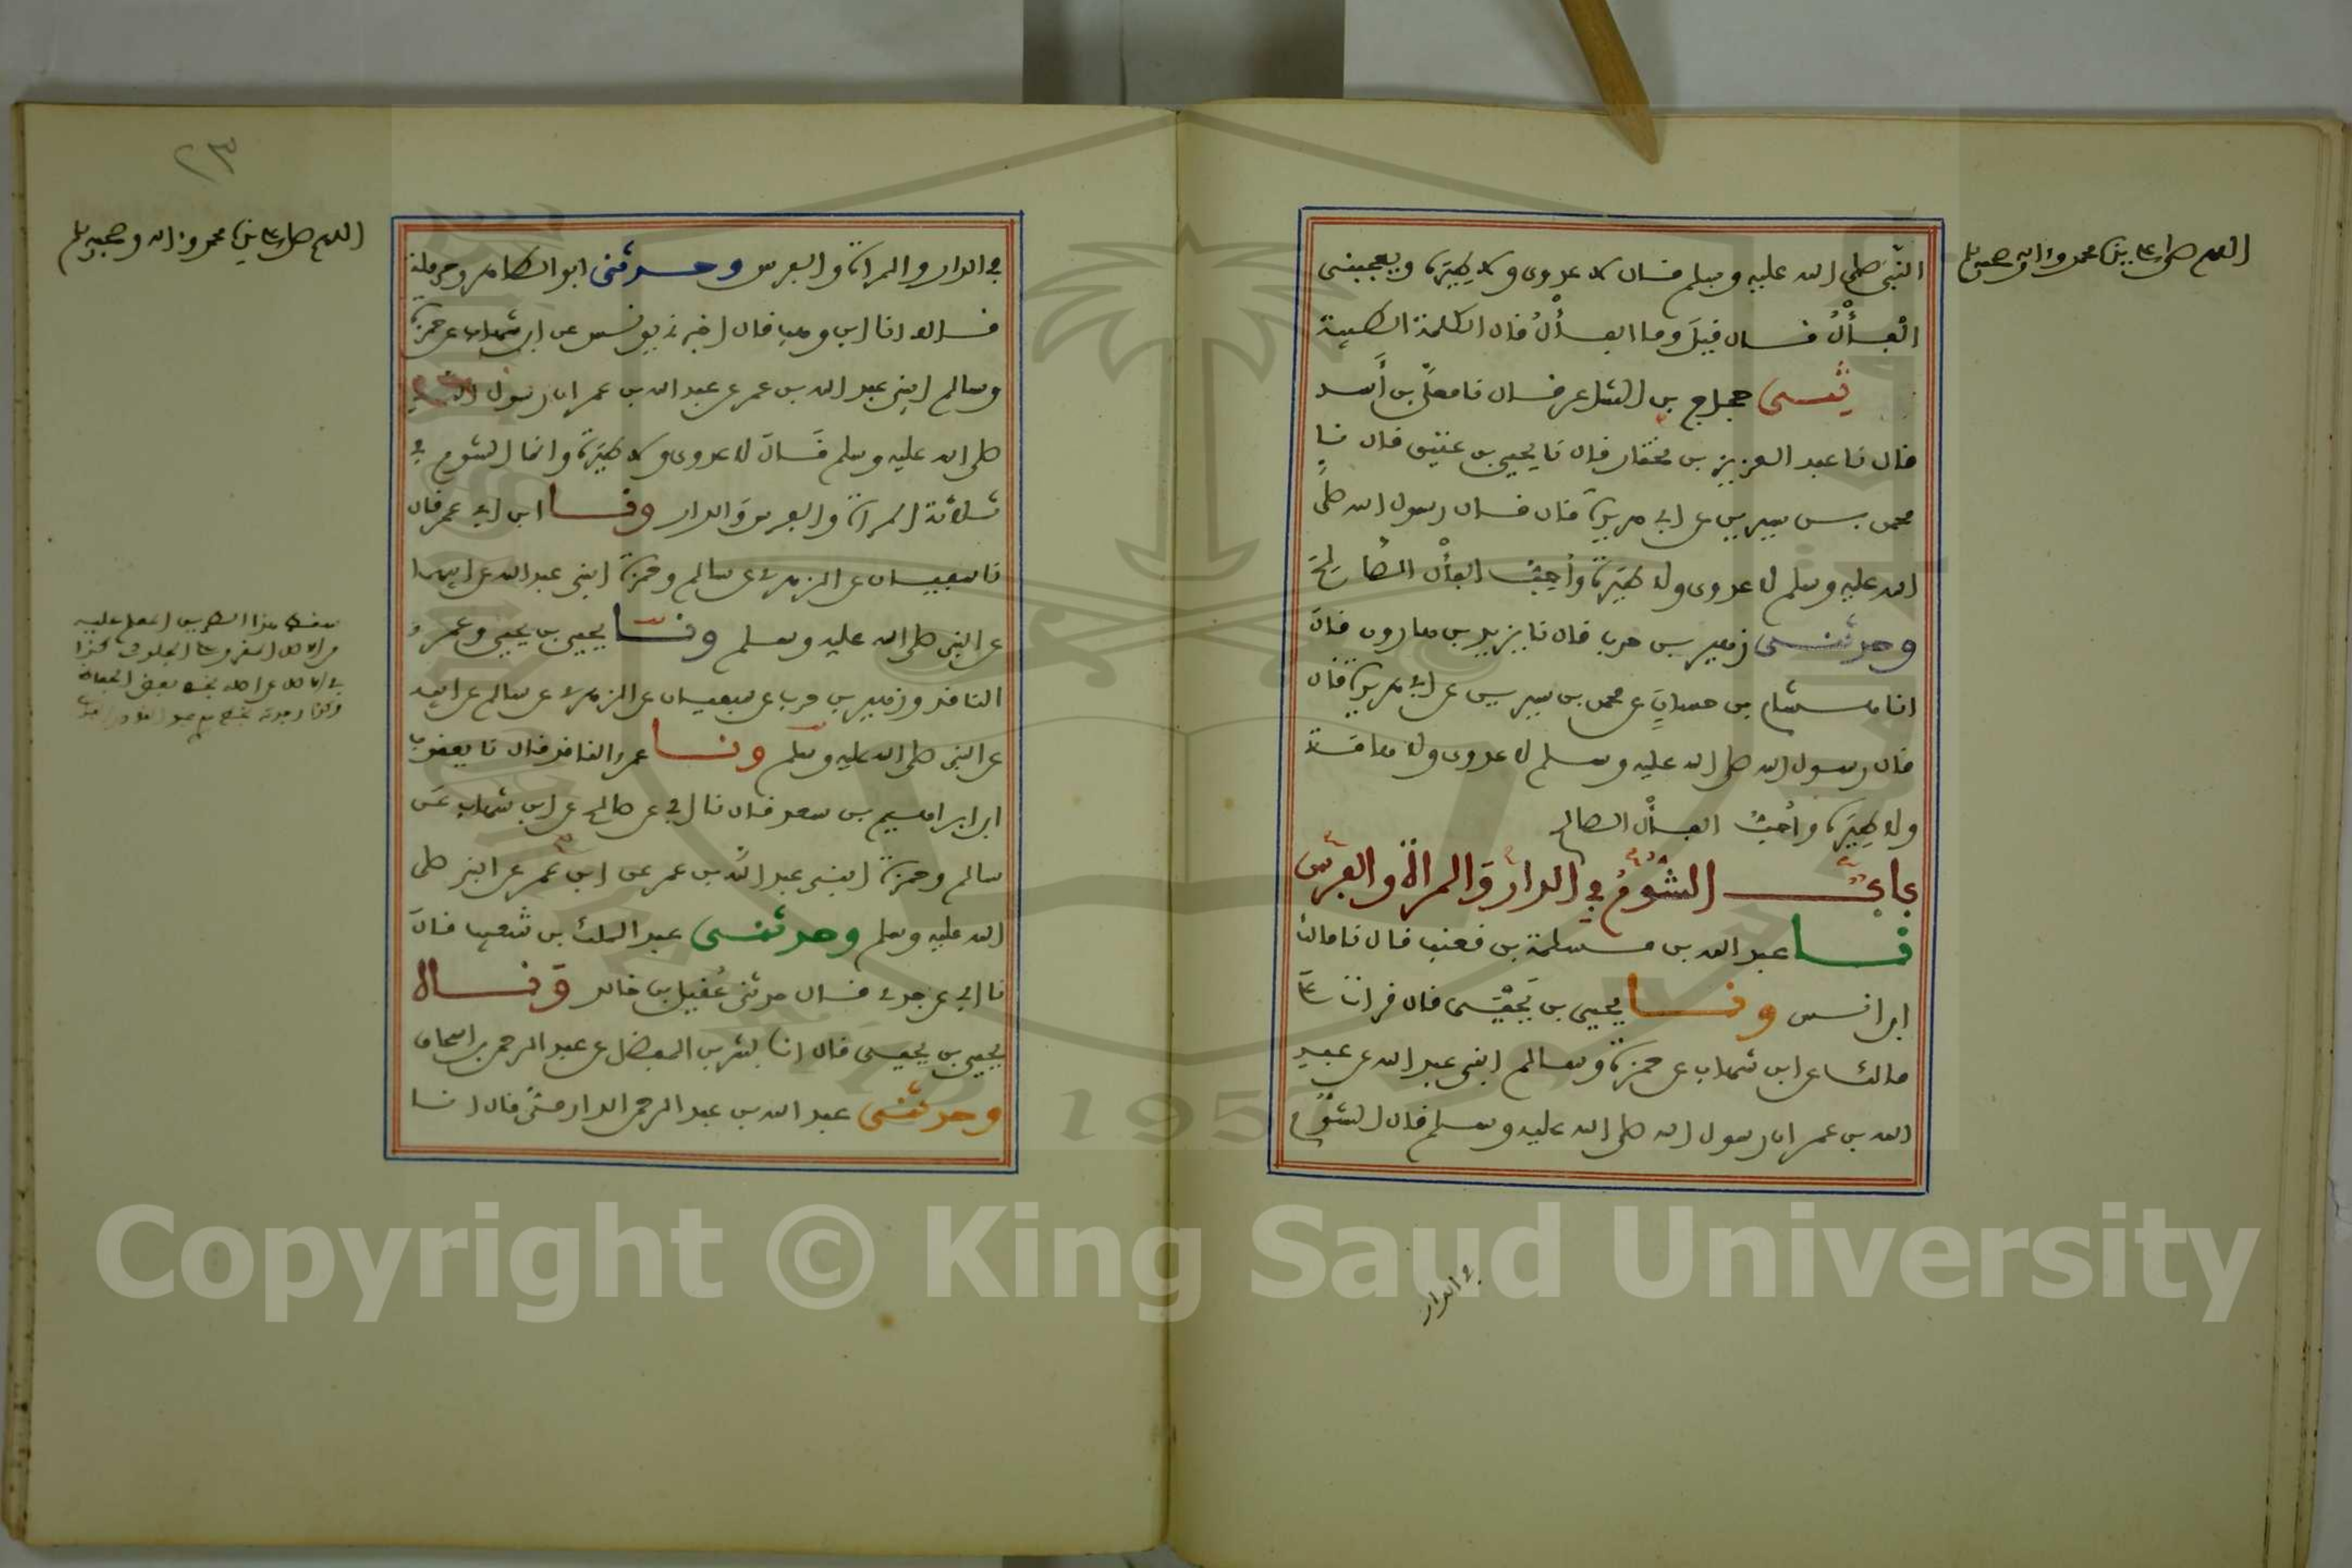 اللهم صل على سيدنا محمد وءاله وصحبه وسلم
النبي صلى الله عليه وسلم قال لا عدوى ولا طيرة ويعجبني
الفأل قال قيل وما الفأل قال الكلمة الطيبة
ثني حجاج بن الشاعر قال نا معلى بن أسد
قال نا عبد العزيز بن مختار قال نا يحيى بن عتيق قال نا
محمد بن سيرين عن ابي هريرة قال قال رسول الله صلى
الله عليه وسلم لا عدوى ولا طيرة وأحب الفأل الصالح
وحدثني زهير بن حرب قال نا يزيد بن هارون قال
انا هشام بن حسان عن محمد بن سيرين عن ابي هريرة قال
قال رسول الله صلى الله عليه وسلم لا عدوى ولا هامة
ولا طيرة وأحب الفأل الصالح
باب الشؤم في الدار والمرأة والفرس
نا عبد الله بن مسلمة بن قعنب قال نا مالك
ابن انس ونا يحيى بن يحيى قال قرات على
مالك عن ابن شهاب عن حمزة وسالم ابني عبد الله عن عبد
الله بن عمر ان رسول الله صلى الله عليه وسلم قال الشؤم
في الدار
٢٣
اللهم صل على سيدنا محمد وءاله وصحبه وسلم
في الدار والمراة والفرس وحدثني ابو الطاهر وحرملة
قالا انا ابن وهب قال اخبرني يونس عن ابن شهاب عن حمزة
وسالم ابني عبد الله بن عمر عن عبد الله بن عمر ان رسول الله
صلى الله عليه وسلم قال لا عدوى ولا طيرة وانما الشؤم في
ثلاثة المراة والفرس والدار ونا ابن ابي عمر قال
نا سفيان عن الزهري عن سالم وحمزة ابني عبد الله عن ابيهما
عن النبي صلى الله عليه وسلم ونا يحيى بن يحيى وعمرو
الناقد وزهير بن حرب عن سفيان عن الزهري عن سالم عن ابيه
عن النبي صلى الله عليه وسلم ونا عمرو الناقد قال نا يعقوب
ابن ابراهيم بن سعد قال نا ابي عن صالح عن ابن شهاب عن
سالم وحمزة ابني عبد الله بن عمر عن ابن عمر عن النبي صلى
الله عليه وسلم وحدثني عبد الملك بن شعيب قال
نا ابي عن جدي قال حدثني عقيل بن خالد ونا
يحيى بن يحيى قال انا بشر بن المفضل عن عبد الرحمن بن اسحاق
وحدثني عبد الله بن عبد الرحمن الدارمي قال انا